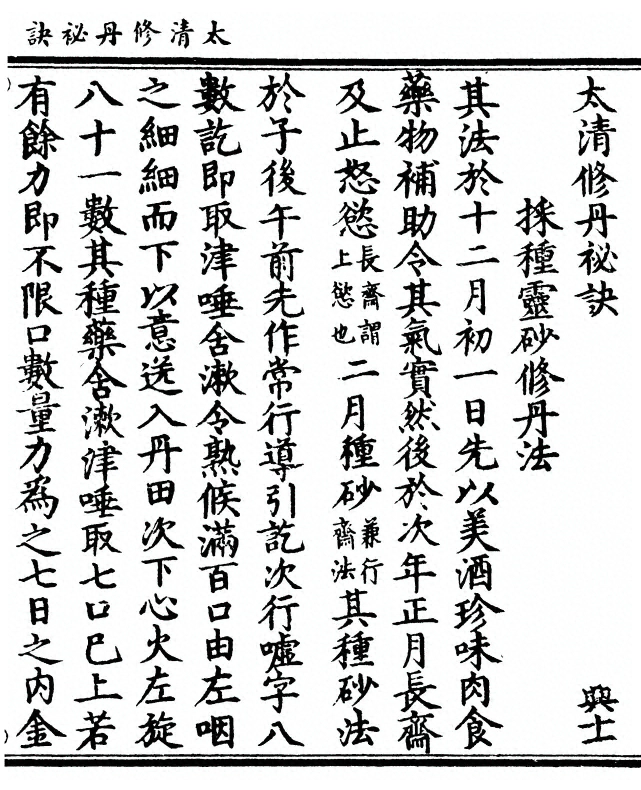 太清修丹祕訣
太清修丹祕訣　　　　　　　　　興士
採種靈砂修丹法
其法於十二月初一日先以美酒珍味肉食
藥物補助令其氣實然後於次年正月長齋
及止怒慾長齋謂上慾也二月種砂兼行齋法其種砂法
於子後午前先作常行導引訖次行噓字八
數訖即取津唾含漱令熟候滿百口由左咽
之細細而下以意送入丹田次下心火左旋
八十一數其種藥含漱津唾取七口巳上若
有餘力即不限口數量力為之七日之內金